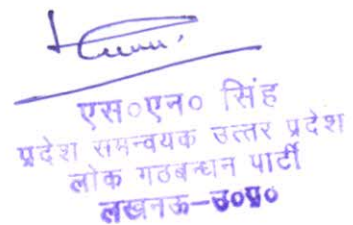 एस०एन० सिंह
प्रदेश समन्वयक उत्तर प्रदेश
लोक गठबन्धन पार्टी
लखनऊ-उ०प्र०